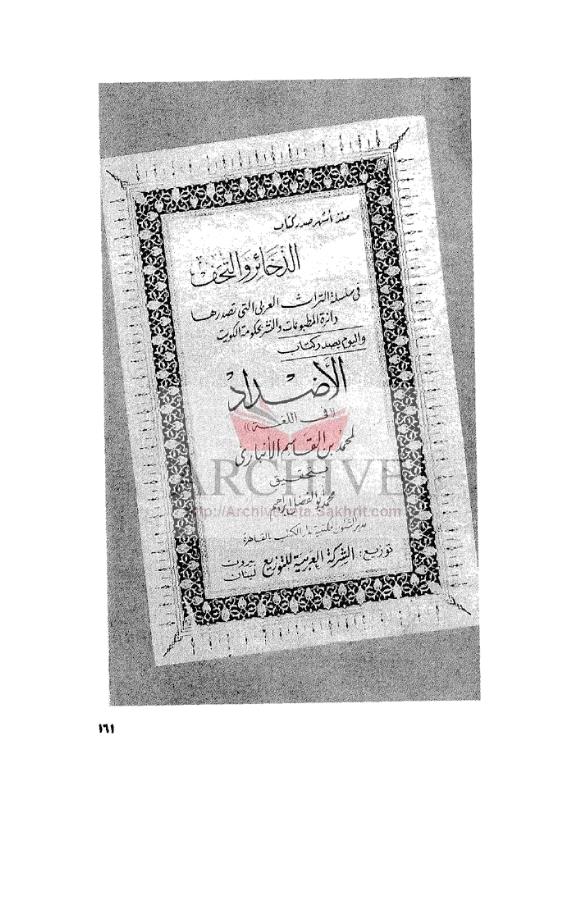 منذ أشهر صدر كتاب
الذخائر والتحف
في سلسلة التراث العربي التي تصدرها
دائرة المطبوعات والنشر بحكومة الكويت
واليوم يصدر كتاب
الأضداد
((في اللغة))
لمحمد بن القاسم الأنباري
تحقيق
ARCHIVE
محمد أبو الفضل إبراهيم
http://Archivebeta.Sakhrit.com
مدير الشئون المكتبية بدار الكتب القاهرة
توزيع: الشركة العربية للتوزيع بيروت لبنان
١٦١